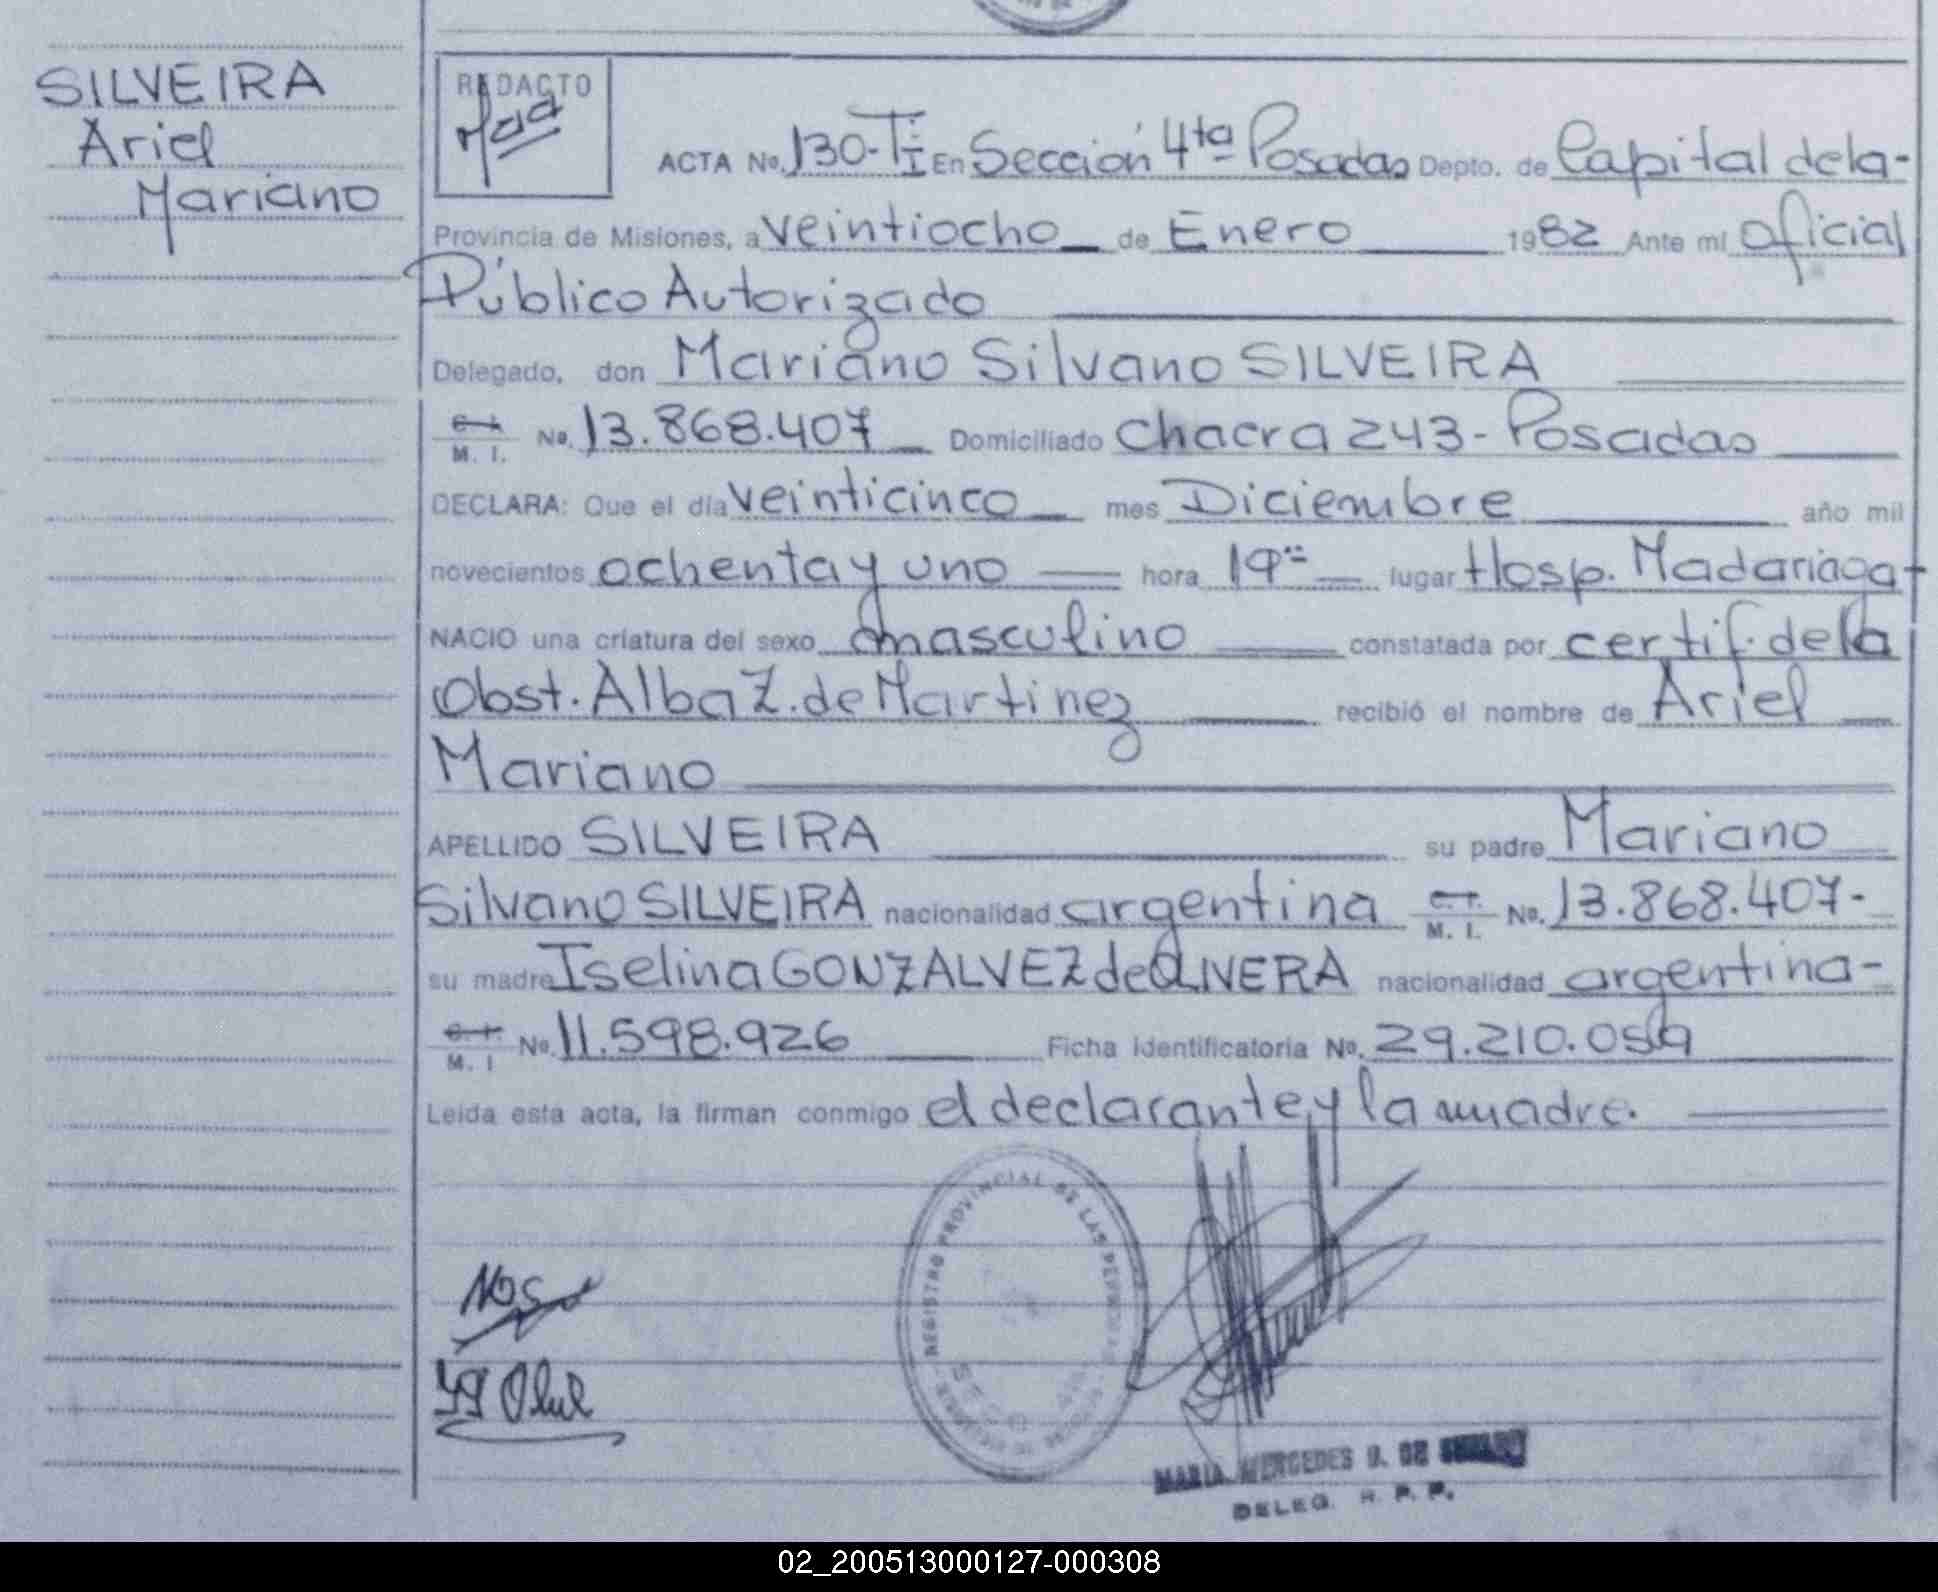 SILVEIRA
Ariel
Mariano
REDACTO
ACTA No. 130-T I En Sección 4ta Posadas Depto. de Capital de la-
Provincia de Misiones, a veintiocho de Enero 1982 Ante mi Oficial
Público Autorizado
Delegado, don Mariano Silvano SILVEIRA
C. I. M. I. No. 13.868.407 Domiciliado Chacra 243- Posadas
DECLARA: Que el día veinticinco mes Diciembre año mil
novecientos ochenta y uno hora 19 lugar Hosp. Madariaga
NACIO una criatura del sexo masculino constatada por certif. de la
Obst. Alba Z. de Martinez recibió el nombre de Ariel
Mariano
APELLIDO SILVEIRA su padre Mariano
Silvano SILVEIRA nacionalidad argentina C. I. M. I. No. 13.868.407-
su madre Iselina GONZALVEZ de OLIVERA nacionalidad argentina-
C. I. M. I No. 11.598.926 Ficha identificatoria No. 29.210.059
Leída esta acta, la firman conmigo el declarante y la madre.
REGISTRO PROVINCIAL DE LAS PERSONAS
MARIA MERCEDES B. DE
DELEG. R. P. P.
02_200513000127-000308